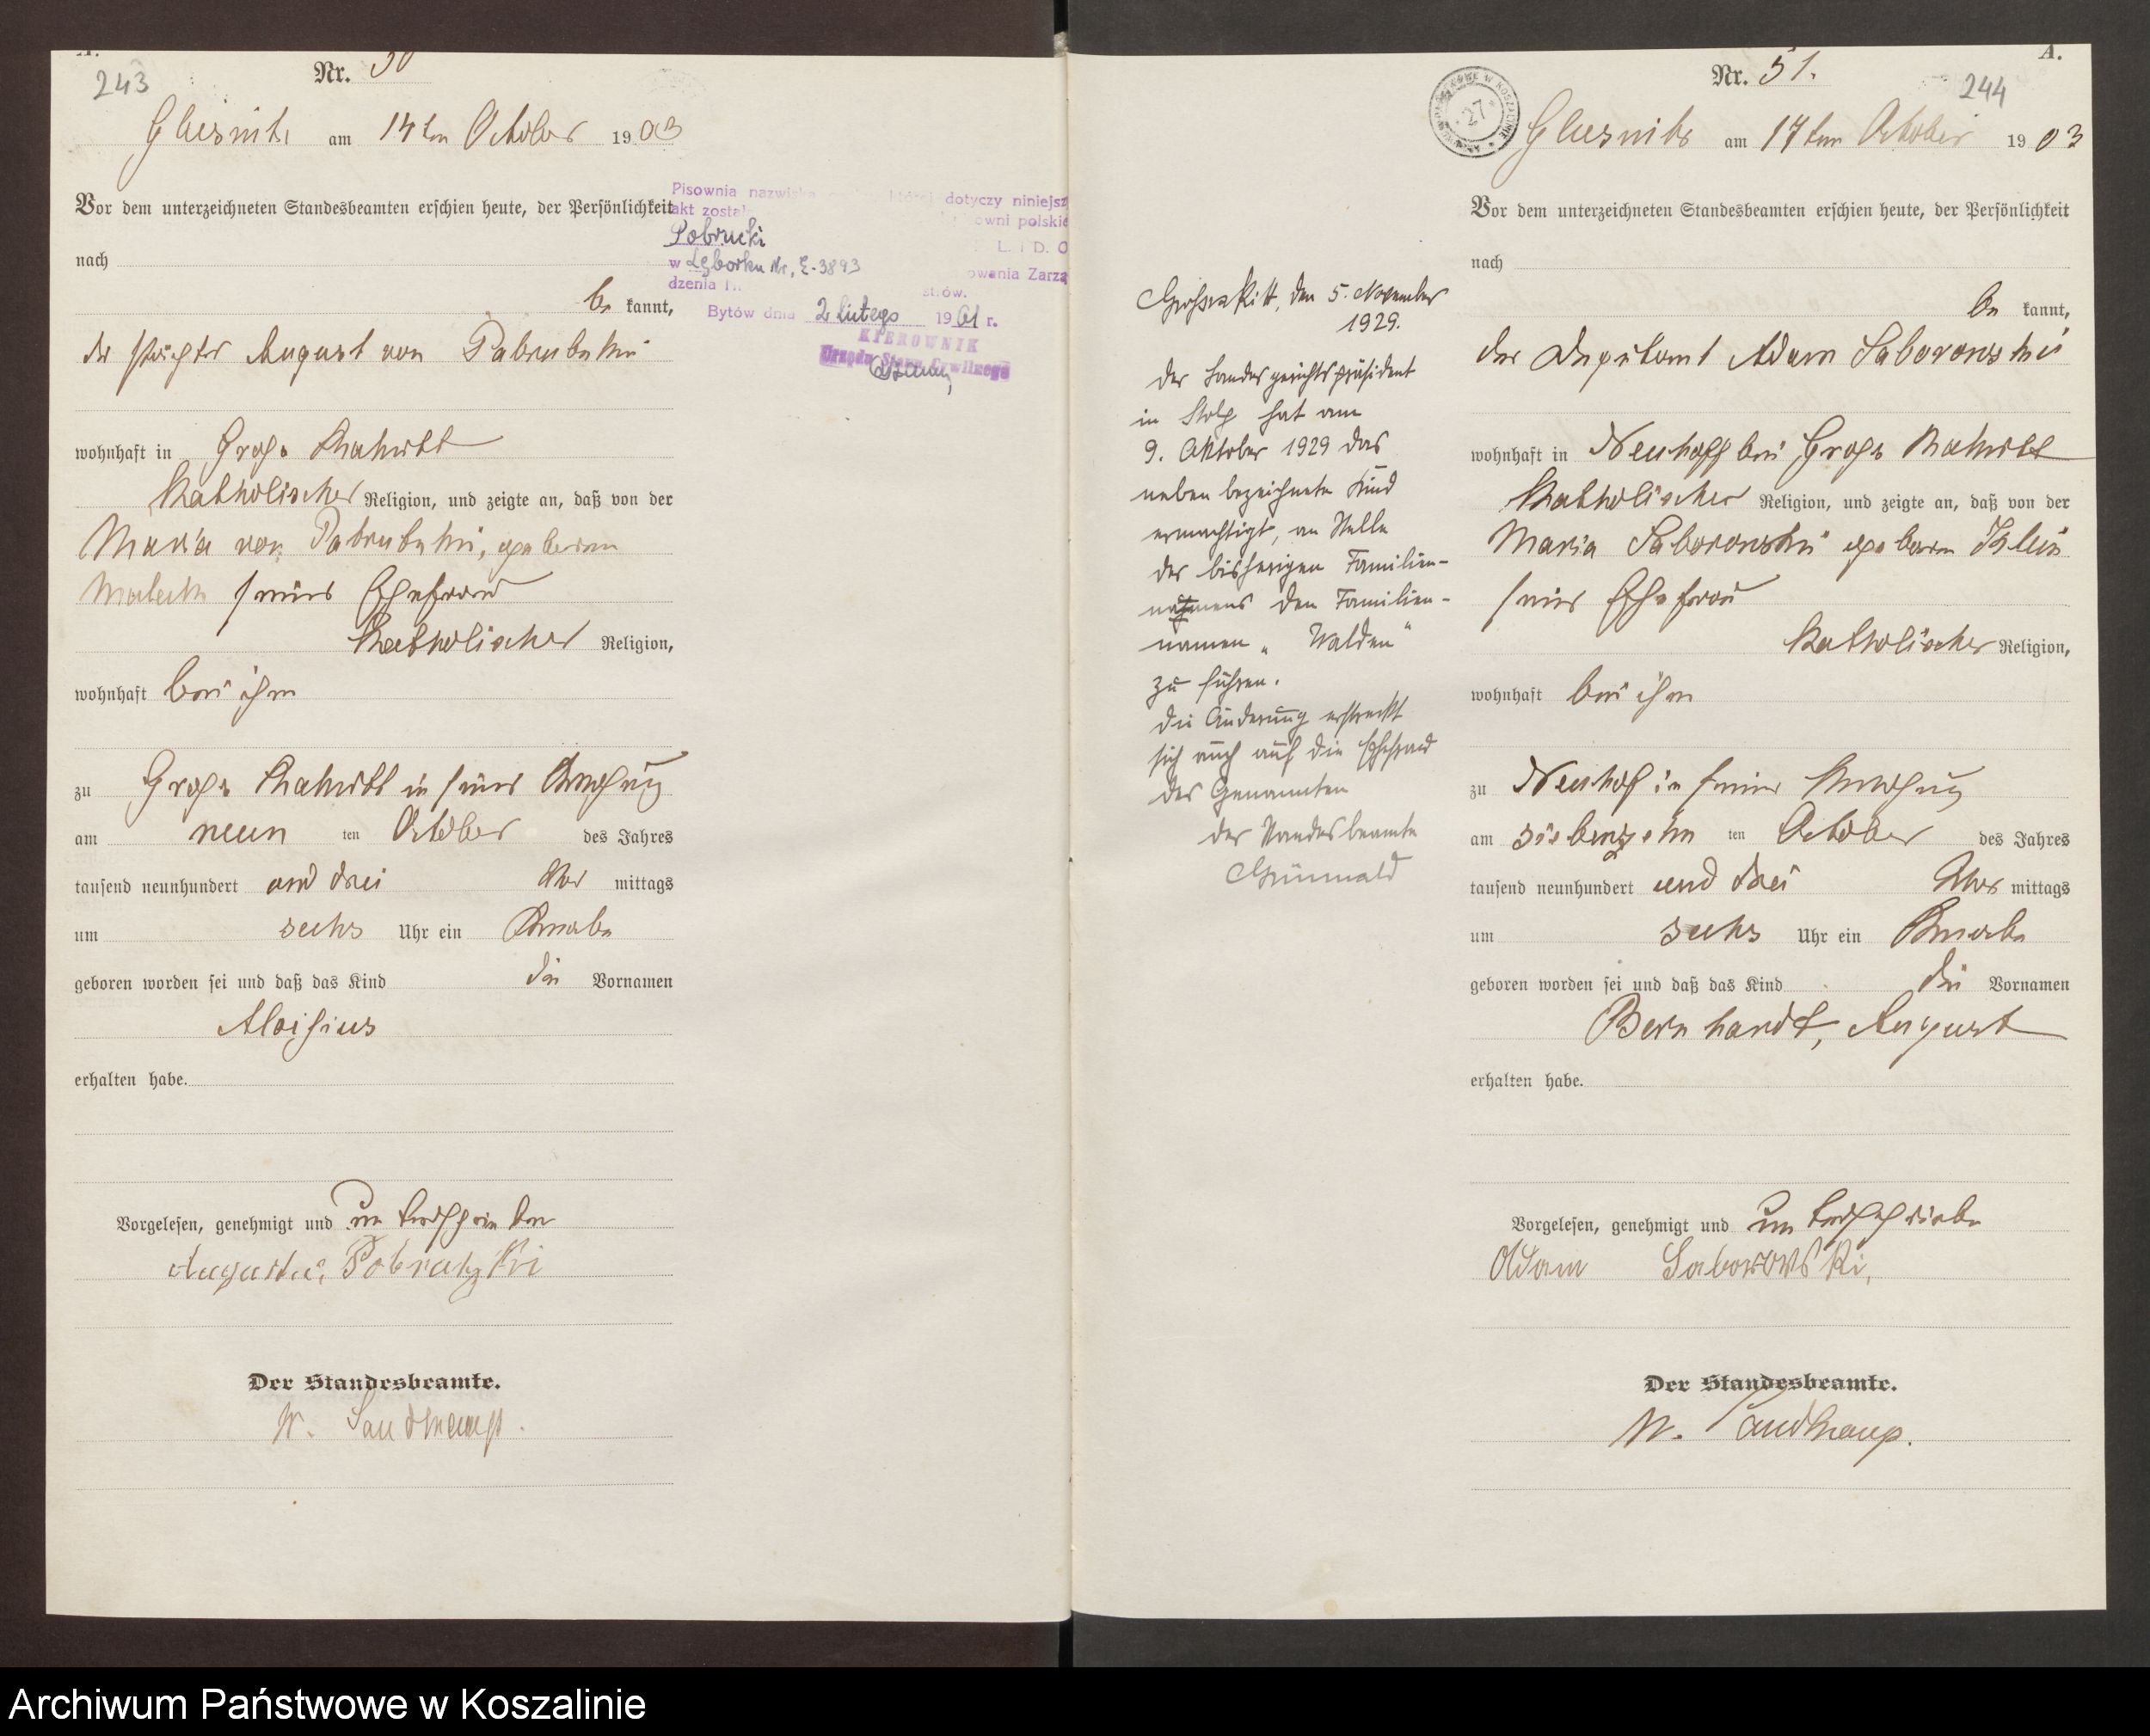 A.
243
Nr. 50
Gliesnitz am 14ten October 1903
Vor dem unterzeichneten Standesbeamten erschien heute, der Persönlichkeit
nach
be kannt,
der Pächter August von
wohnhaft in Groß
Katholischer Religion, und zeigte an, daß von der
Maria von geborene
seiner Ehefrau
Katholischer Religion,
wohnhaft bei ihm
zu Groß in seiner Wohnung
am neun ten October des Jahres
tausend neunhundert und drei Vor mittags
um sechs Uhr ein Knabe
geboren worden sei und daß das Kind die Vornamen
Aloisius
erhalten habe.
Vorgelesen, genehmigt und unterschrieben
Der Standesbeamte.
W. Sandkamp.
Pisownia nazwiska dotyczy niniejsz
akt został owni polskie
Pobrucki
L. i D. O
w Lęborku Nr. E-3893 owania Zarzą
dzenia
Bytów dnia 2 lutego 1961 r.
KIEROWNIK
Urzędu Stanu Cywilnego
A.
Nr. 51.
244
Gliesnitz am 17ten October 1903
Vor dem unterzeichneten Standesbeamten erschien heute, der Persönlichkeit
nach
be kannt,
der Deputant Adam Saborowski
wohnhaft in Neuhoff bei Groß
Katholischer Religion, und zeigte an, daß von der
Maria Saborowski geborne
seiner Ehefrau
Katholischer Religion,
wohnhaft bei ihm
zu Neuhof in seiner Wohnung
am siebenzehn ten October des Jahres
tausend neunhundert und drei Vor mittags
um sechs Uhr ein Knabe
geboren worden sei und daß das Kind die Vornamen
Bernhardt, August
erhalten habe.
Vorgelesen, genehmigt und unterschrieben
Adam Saborowski,
Der Standesbeamte.
W. Sandkamp.
den 5. November
1929.
Der Landesgerichtspräsident
in Stolp hat am
9. Oktober 1929 das
neben bezeichnete Kind
ermächtigt, an Stelle
des bisherigen Familien-
namens den Familien-
namen „Walden“
zu führen.
Die Änderung erstreckt
sich auch auf die Ehefrau
des Genannten
Der Standesbeamte
Grünwald
27
Archiwum Państwowe w Koszalinie